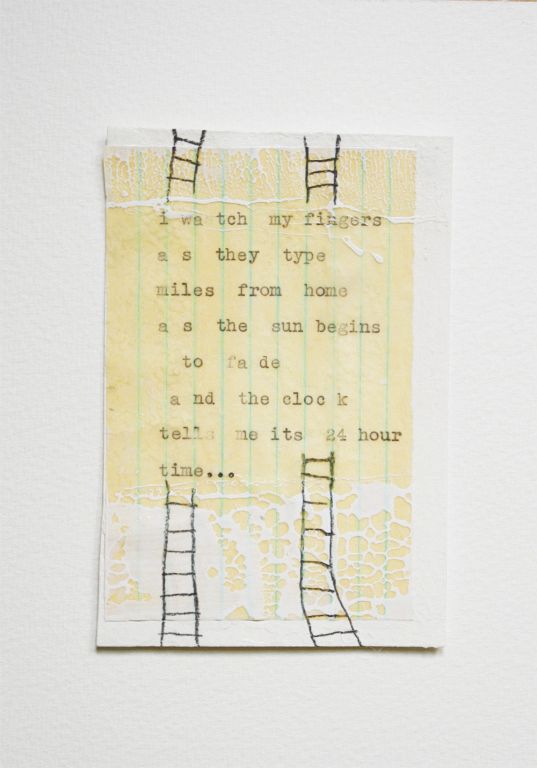 i wa tch my fingers
a s they type
miles from home
a s the sun begins
to fa de
a nd the cloc k
tells me its 24 hour
time...